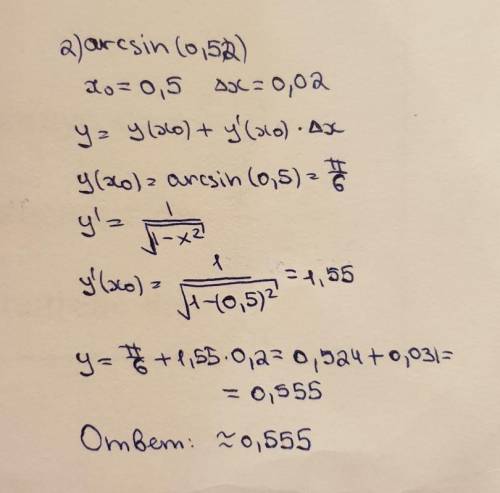 2) arcsin(0,52)
x₀ = 0,5   Δx = 0,02
y = y(x₀) + y'(x₀) · Δx
y(x₀) = arcsin(0,5) = π/6
y' = 1/√(1-x²)
y'(x₀) = 1/√(1-(0,5)²) = 1,55
y = π/6 + 1,55 · 0,2 = 0,524 + 0,031 =
= 0,555
Ответ: ≈ 0,555